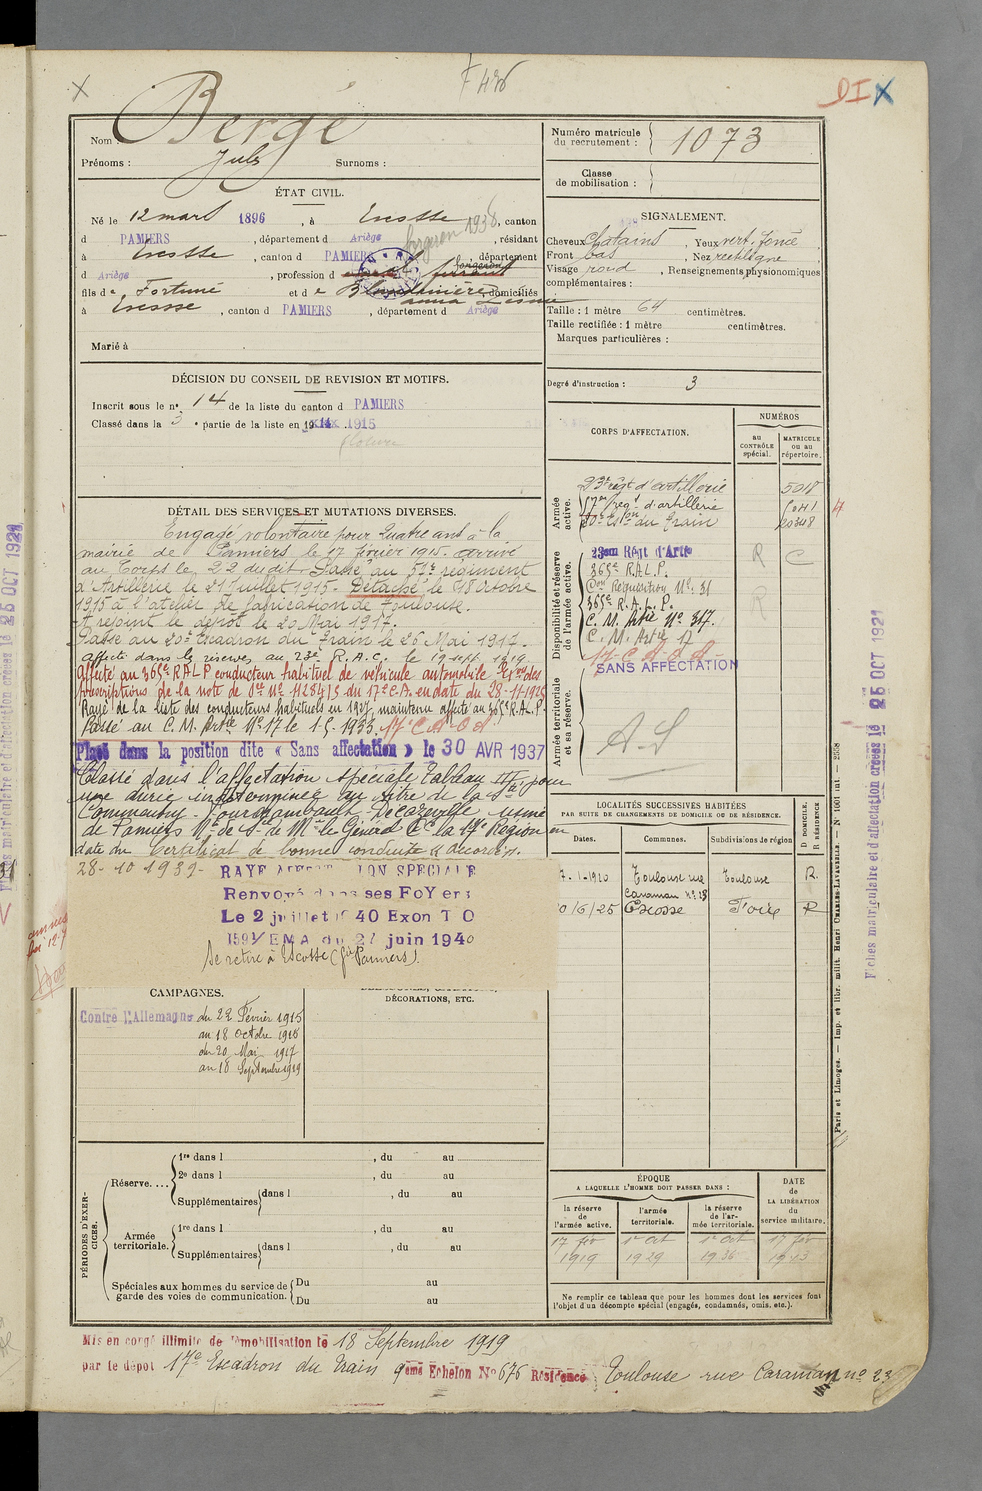 DI X
Nom : Bergé
Prénoms : Jules Surnoms :
Numéro matricule du recrutement : 1073
Classe de mobilisation :
ÉTAT CIVIL.
Né le 12 mars 1896, à Escosse, canton
d PAMIERS, département d Ariège, résidant
à Escosse, canton d PAMIERS, département
d Ariège, profession d
fils de Fortuné et de domiciliés
à Escosse, canton d PAMIERS, département d Ariège
Marié à
SIGNALEMENT.
Cheveux chatains, Yeux vert foncé,
Front bas, Nez rectiligne,
Visage rond, Renseignements physionomiques
complémentaires :
Taille : 1 mètre 64 centimètres.
Taille rectifiée : 1 mètre centimètres.
Marques particulières :
Degré d'instruction : 3
DÉCISION DU CONSEIL DE REVISION ET MOTIFS.
Inscrit sous le n° 14 de la liste du canton d PAMIERS
Classé dans la 3e partie de la liste en 1915
DÉTAIL DES SERVICES ET MUTATIONS DIVERSES.
Engagé volontaire pour quatre ans à la
mairie de Pamiers le 17 février 1915. arrivé
au Corps le 22 du dit. Passé au 57e régiment
d'Artillerie le 21 Juillet 1915. Détaché le 18 Octobre
1915 à l'atelier de fabrication de Toulouse.
A rejoint le dépôt le 20 Mai 1917.
Passé au 20e Escadron du Train le 26 Mai 1917.
affecté dans la réserve au 23e R.A.C. le 19 sept. 1919
Affecté au 365e R.A.L.P. conducteur habituel de véhicule automobile
prescriptions de la note de Sce No 11284/S du 17e C.A. en date du 28-11-192
Rayé de la liste des conducteurs habituels en 1927, maintenu affecté au 365e R.A.L.P.
Passé au C. M. Artie No 17 le 1933.
Placé dans la position dite « Sans affectation » le 30 AVR 1937
Classé dans l'affectation spéciale Tableau III pour
une durée indéterminée au titre de la Sté
Commentry Fourchambault Decazeville usine
de Pamiers de Mr le Général Ct la 17e Région en
date du Certificat de bonne conduite accordé.
28-10-1939- RAYE AFFECTATION SPECIALE
Renvoyé dans ses FoYers
Le 2 juillet 1940 Exon T O
1591/EMA du 27 juin 1940
Se retire à Escosse (par Pamiers).
CORPS D'AFFECTATION.
NUMÉROS
au CONTRÔLE spécial.
MATRICULE ou au répertoire.
Armée active.
23e régt d'artillerie 5018
57e régt d'artillerie
20e Eson du Train 20348
Disponibilité et réserve de l'armée active.
23em Régt d'Artie R C
365e R.A.L.P.
Con Réquisition No 31
365e R.A.L.P. R
C. M. Artie No 317.
C. M. Artie 17
SANS AFFECTATION
Armée territoriale et sa réserve.
A.S
LOCALITÉS SUCCESSIVES HABITÉES
PAR SUITE DE CHANGEMENTS DE DOMICILE OU DE RÉSIDENCE.
Dates. Communes. Subdivisions de région
D DOMICILE. R RÉSIDENCE
7-1-1920 Toulouse rue Caraman Toulouse R.
10/6/25 Escosse Foix R
CAMPAGNES.
Contre l'Allemagne du 22 Février 1915
au 18 octobre 1915
du 20 Mai 1917
au 18 Septembre 1919
DÉCORATIONS, ETC.
PÉRIODES D'EXERCICES.
Réserve....
1re dans l , du au
2e dans l , du au
Supplémentaires dans l , du au
Armée territoriale.
1re dans l , du au
Supplémentaires dans l , du au
Spéciales aux hommes du service de garde des voies de communication.
Du au
Du au
ÉPOQUE
A LAQUELLE L'HOMME DOIT PASSER DANS :
la réserve de l'armée active.
l'armée territoriale.
la réserve de l'armée territoriale.
DATE de LA LIBÉRATION du service militaire.
17 fév 1919
1er oct 1929
1er oct 1936
17 fév 1943
Ne remplir ce tableau que pour les hommes dont les services font
l'objet d'un décompte spécial (engagés, condamnés, omis, etc.).
Mis en congé illimité de démobilisation le 18 Septembre 1919
par le dépôt 17e Escadron du train 9ème Echelon No 676 Résidence Toulouse rue Caraman no 23
Paris et Limoges. — Imp. et libr. milit. Henri CHARLES-LAVAUZELLE.
Fiches matriculaire et d'affectation créées le 25 OCT 1921